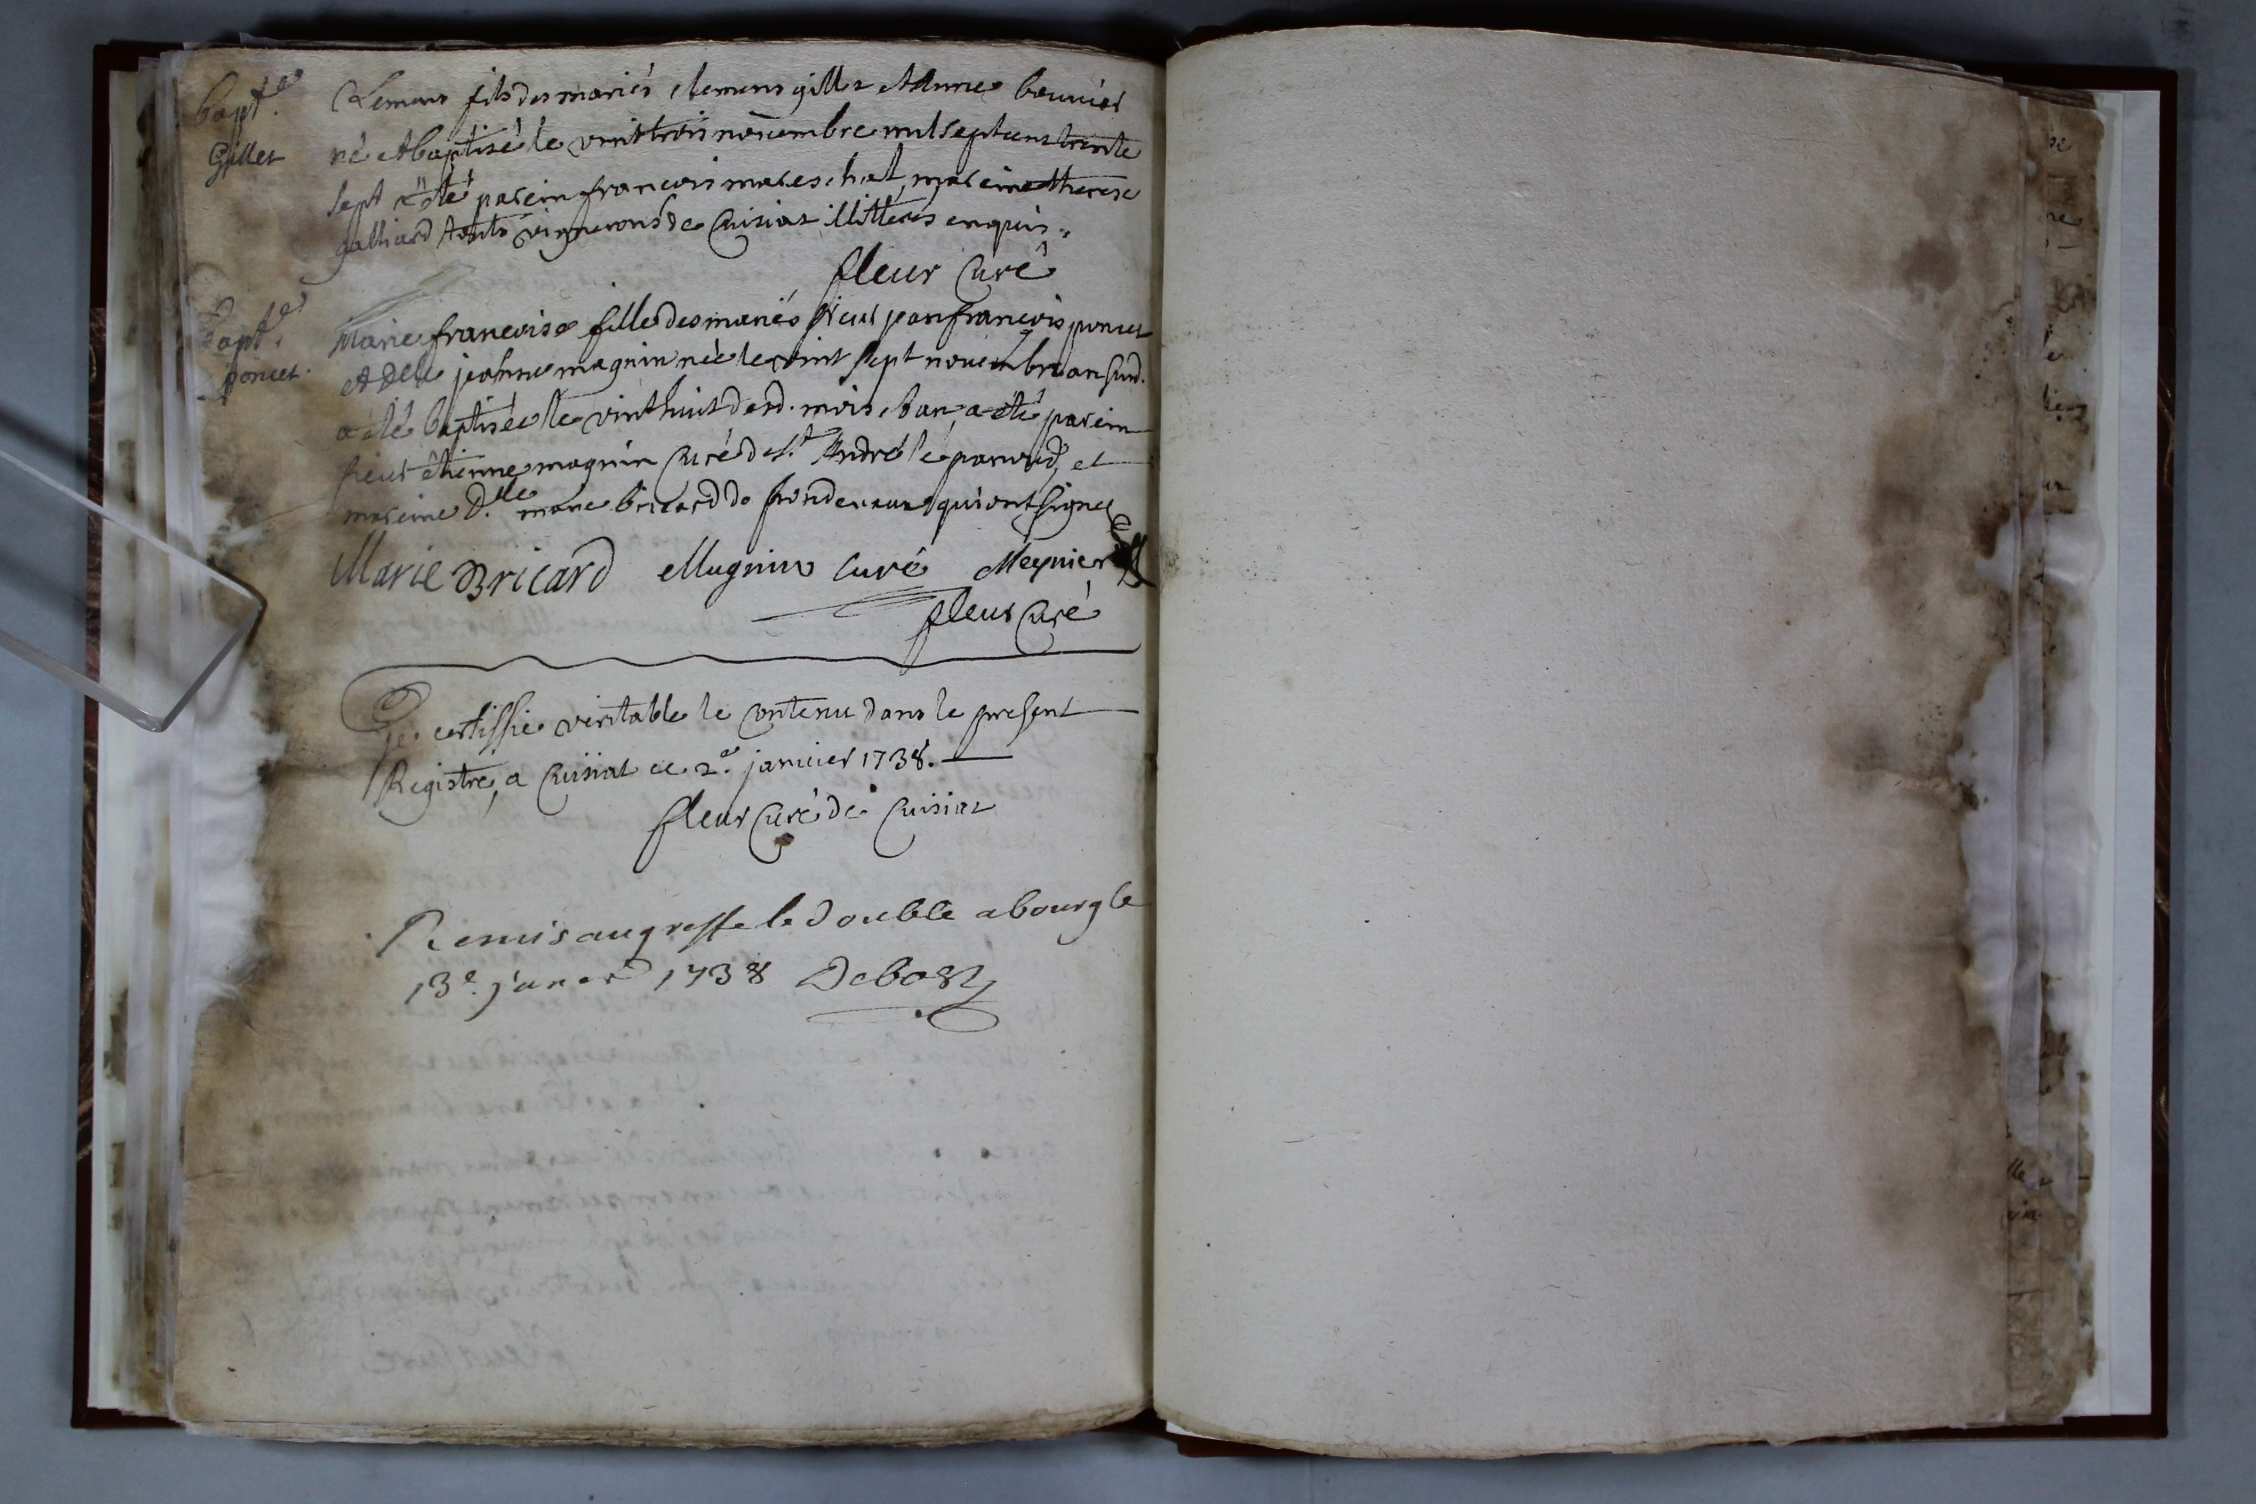 bapt.e
Gillet
Clemens fils des mariés clemens gillet et Anne bouvier
né et baptisé le vint trois novembre mil sept cens trente
sept a été parein francois mareschal, mareine therese
galliard touts vignerons de Cuisiat illitterés enquis.
fleur Curé
Bapt.e
poncet.
Marie francoise fille des mariés sieur jean francois poncet
et Delle jeanne magnin née le vint sept novembre an susd.
a été baptisée le vint huit desd. mois et an, a été parein
sieur étienne magnin Curé de St. André le panoud, et
mareine D.lle marie bricard de qui ont signe
Marie Bricard Magnin curé Meynier
fleur Curé
Je certiffie veritable le contenu dans le present
Registre, a Cuisiat ce 2.e janvier 1738.
fleur Curé de Cuisiat
Remis au greffe le double a bourg le
13e. janer 1738 Debost